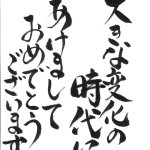 大きな変化の
時代に
あけまして
おめでとう
ございます